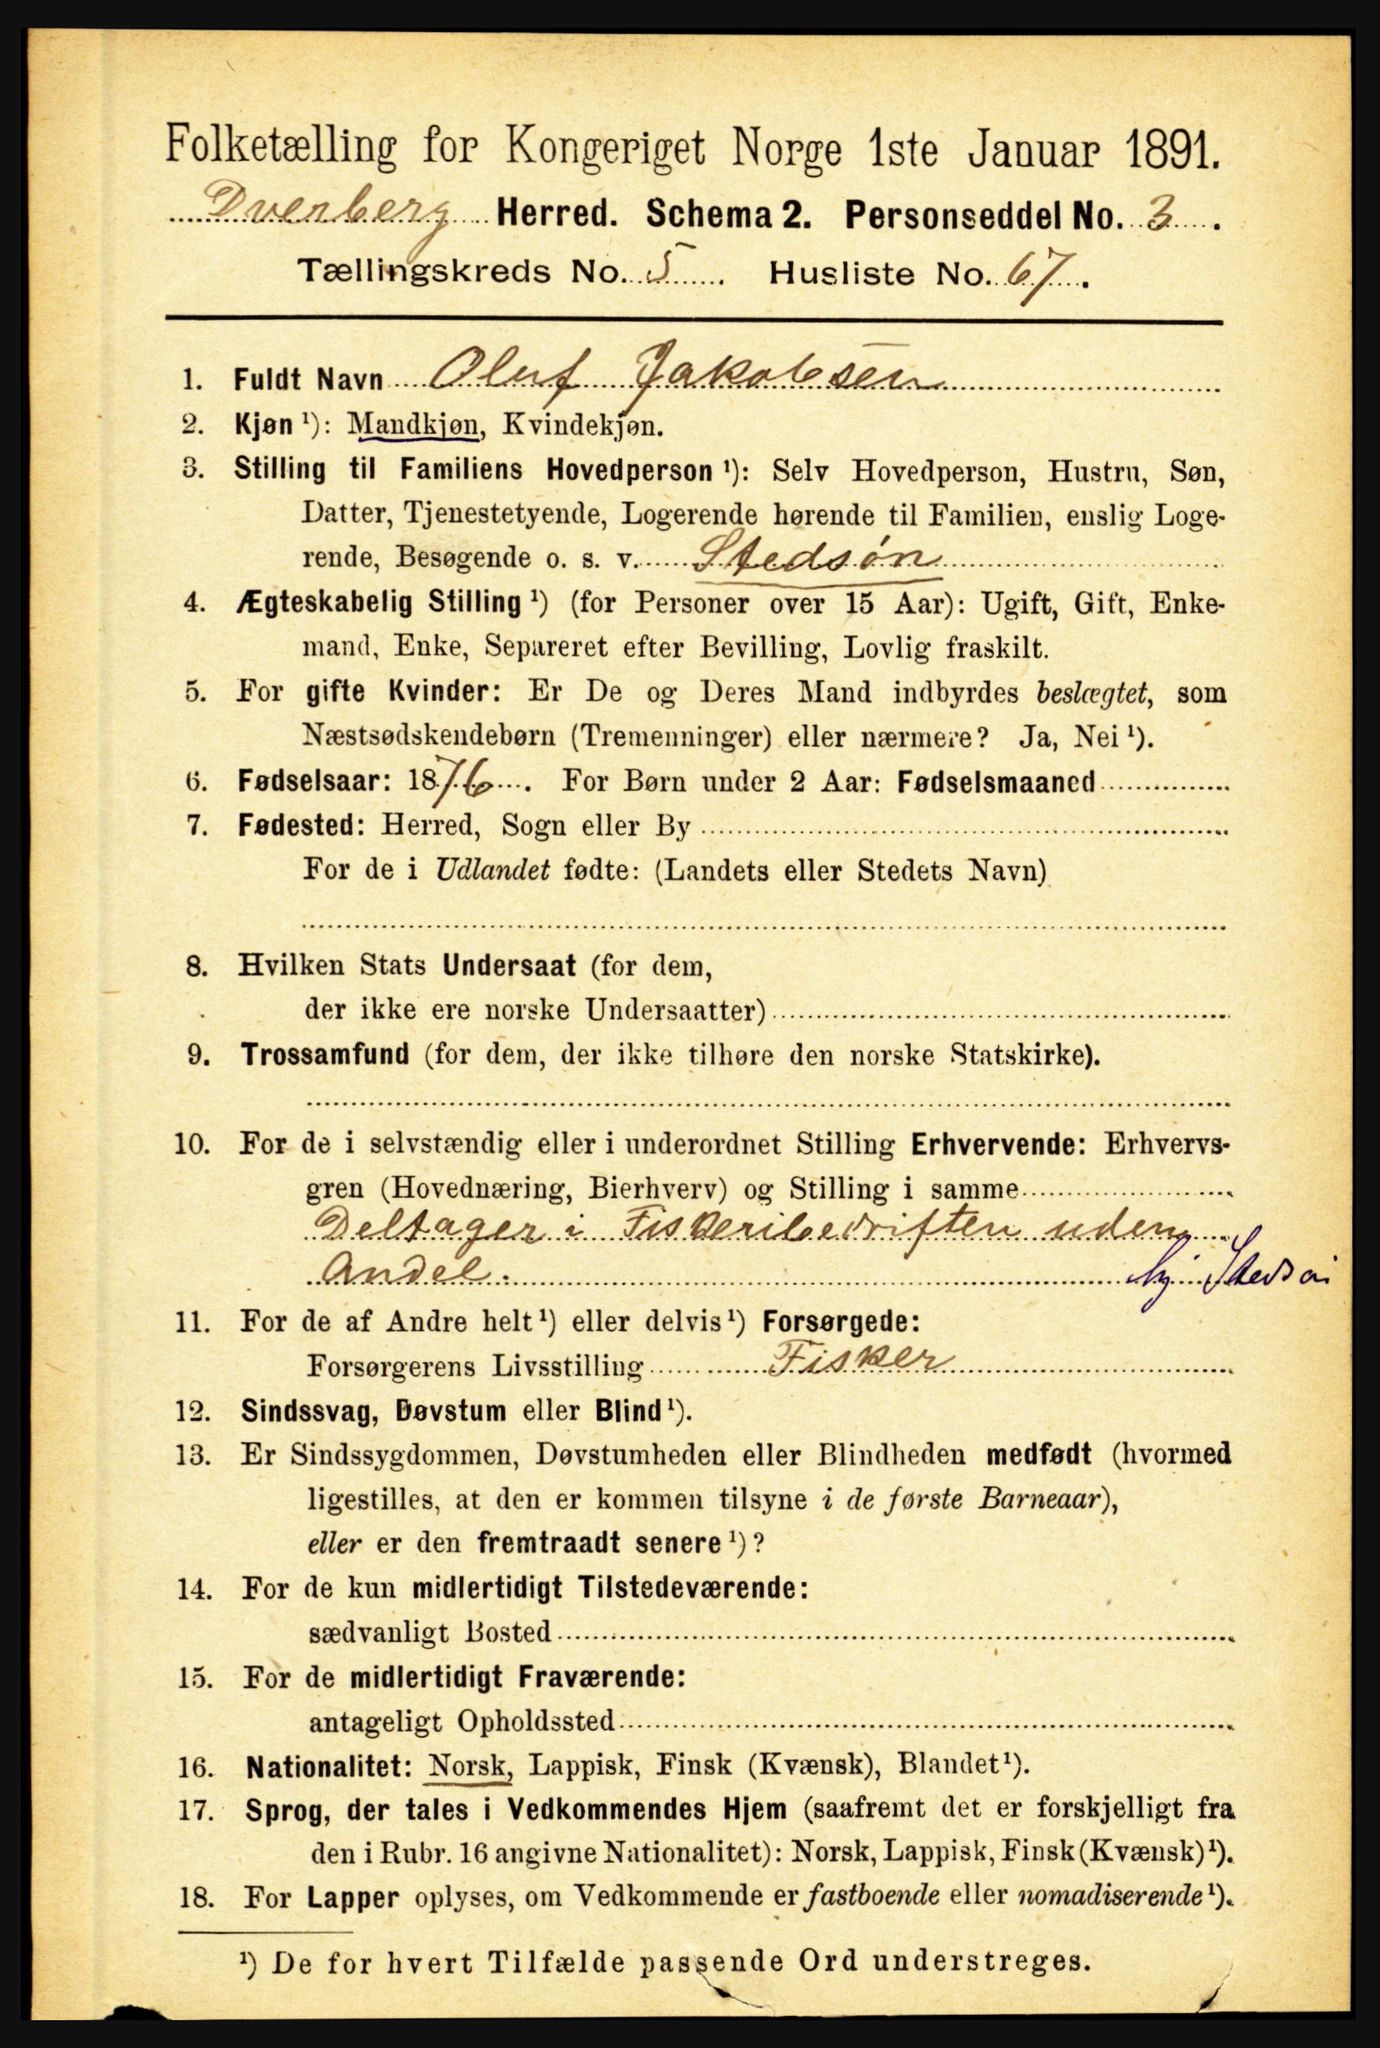 Folketælling for Kongeriget Norge 1ste Januar 1891.
Dverberg Herred. Schema 2. Personseddel No. 3.
Tællingskreds No. 5. Husliste No. 67.
1. Fuldt Navn Oluf Jakobsen
2. Kjøn ¹): Mandkjøn, Kvindekjøn.
3. Stilling til Familiens Hovedperson ¹): Selv Hovedperson, Hustru, Søn,
Datter, Tjenestetyende, Logerende hørende til Familien, enslig Loge-
rende, Besøgende o. s. v. Stedsøn
4. Ægteskabelig Stilling ¹) (for Personer over 15 Aar): Ugift, Gift, Enke-
mand, Enke, Separeret efter Bevilling, Lovlig fraskilt.
5. For gifte Kvinder: Er De og Deres Mand indbyrdes beslægtet, som
Næstsødskendebørn (Tremenninger) eller nærmere? Ja, Nei ¹).
6. Fødselsaar: 1876. For Børn under 2 Aar: Fødselsmaaned
7. Fødested: Herred, Sogn eller By
For de i Udlandet fødte: (Landets eller Stedets Navn)
8. Hvilken Stats Undersaat (for dem,
der ikke ere norske Undersaatter)
9. Trossamfund (for dem, der ikke tilhøre den norske Statskirke).
10. For de i selvstændig eller i underordnet Stilling Erhvervende: Erhvervs-
gren (Hovednæring, Bierhverv) og Stilling i samme
Deltager i Fiskeribedriften uden
Andel.
11. For de af Andre helt ¹) eller delvis ¹) Forsørgede:
Forsørgerens Livsstilling Fisker
12. Sindssvag, Døvstum eller Blind ¹).
13. Er Sindssygdommen, Døvstumheden eller Blindheden medfødt (hvormed
ligestilles, at den er kommen tilsyne i de første Barneaar),
eller er den fremtraadt senere ¹)?
14. For de kun midlertidigt Tilstedeværende:
sædvanligt Bosted
15. For de midlertidigt Fraværende:
antageligt Opholdssted
16. Nationalitet: Norsk, Lappisk, Finsk (Kvænsk), Blandet ¹).
17. Sprog, der tales i Vedkommendes Hjem (saafremt det er forskjelligt fra
den i Rubr. 16 angivne Nationalitet): Norsk, Lappisk, Finsk (Kvænsk) ¹).
18. For Lapper oplyses, om Vedkommende er fastboende eller nomadiserende ¹).
¹) De for hvert Tilfælde passende Ord understreges.